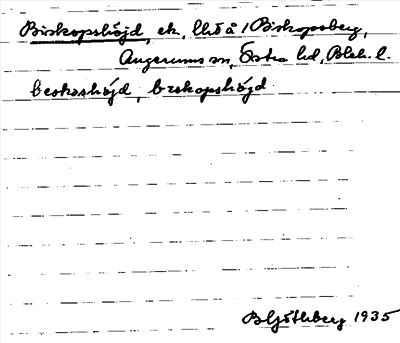 Biskopshöjd, ek. lhd å 1 Biskopsberg,
Augerums sn, Östra hd, Blek. l.
beskashöjd, bezkopshöjd
B Ljöthberg 1935